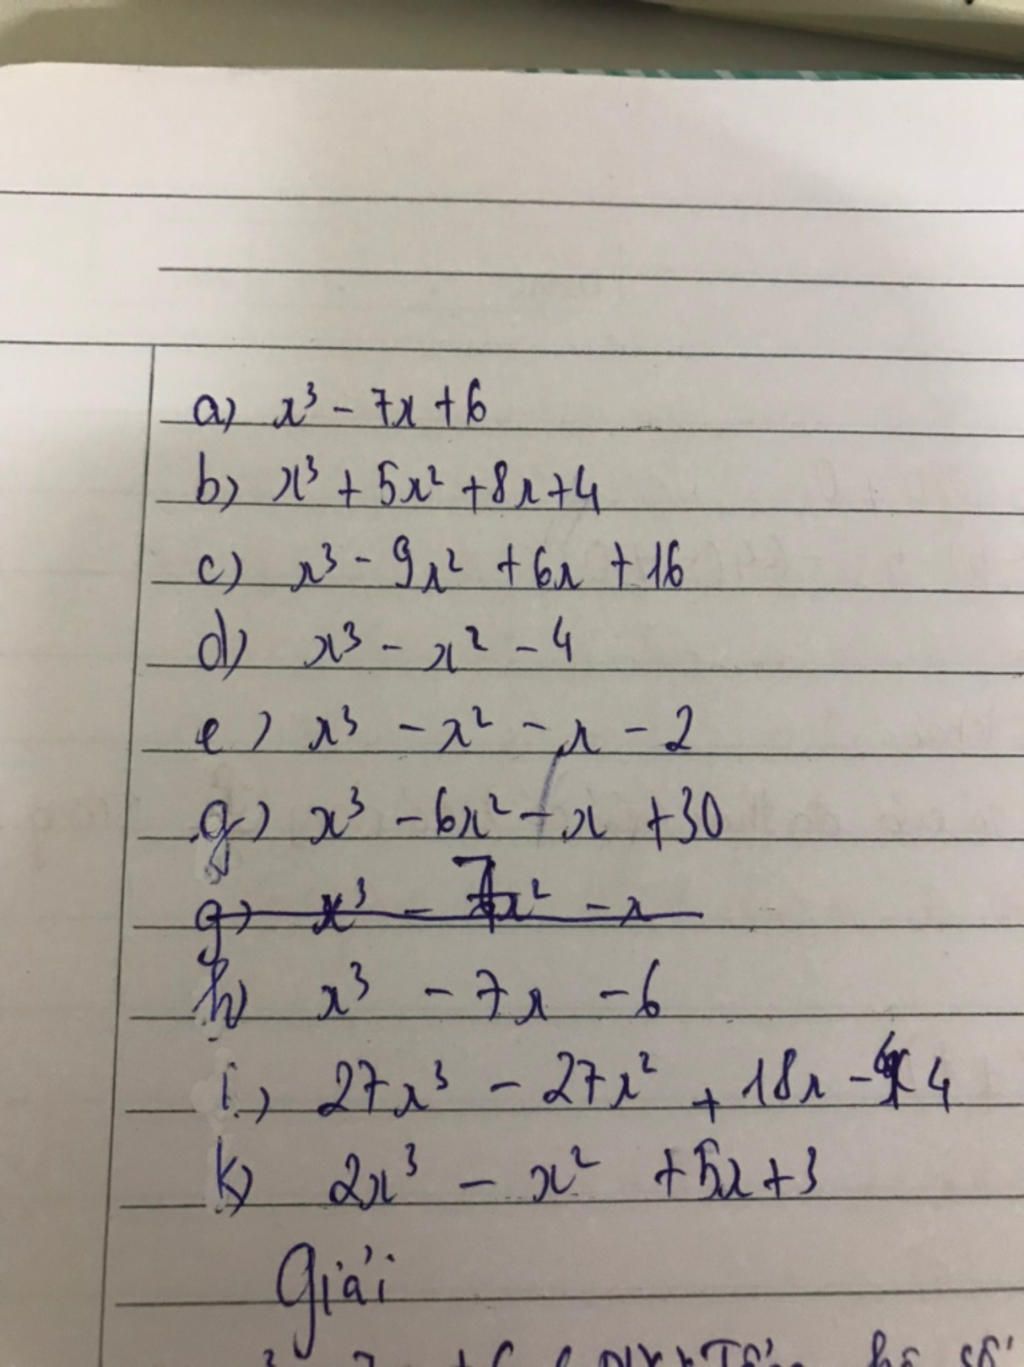 a) x³ - 7x + 6
b) x³ + 5x² + 8x + 4
c) x³ - 9x² + 6x + 16
d) x³ - x² - 4
e) x³ - x² - x - 2
g) x³ - 6x² - x + 30
g) x³ - 7x² - x
h) x³ - 7x - 6
i) 27x³ - 27x² + 18x - 4
k) 2x³ - x² + 5x + 3
Giải